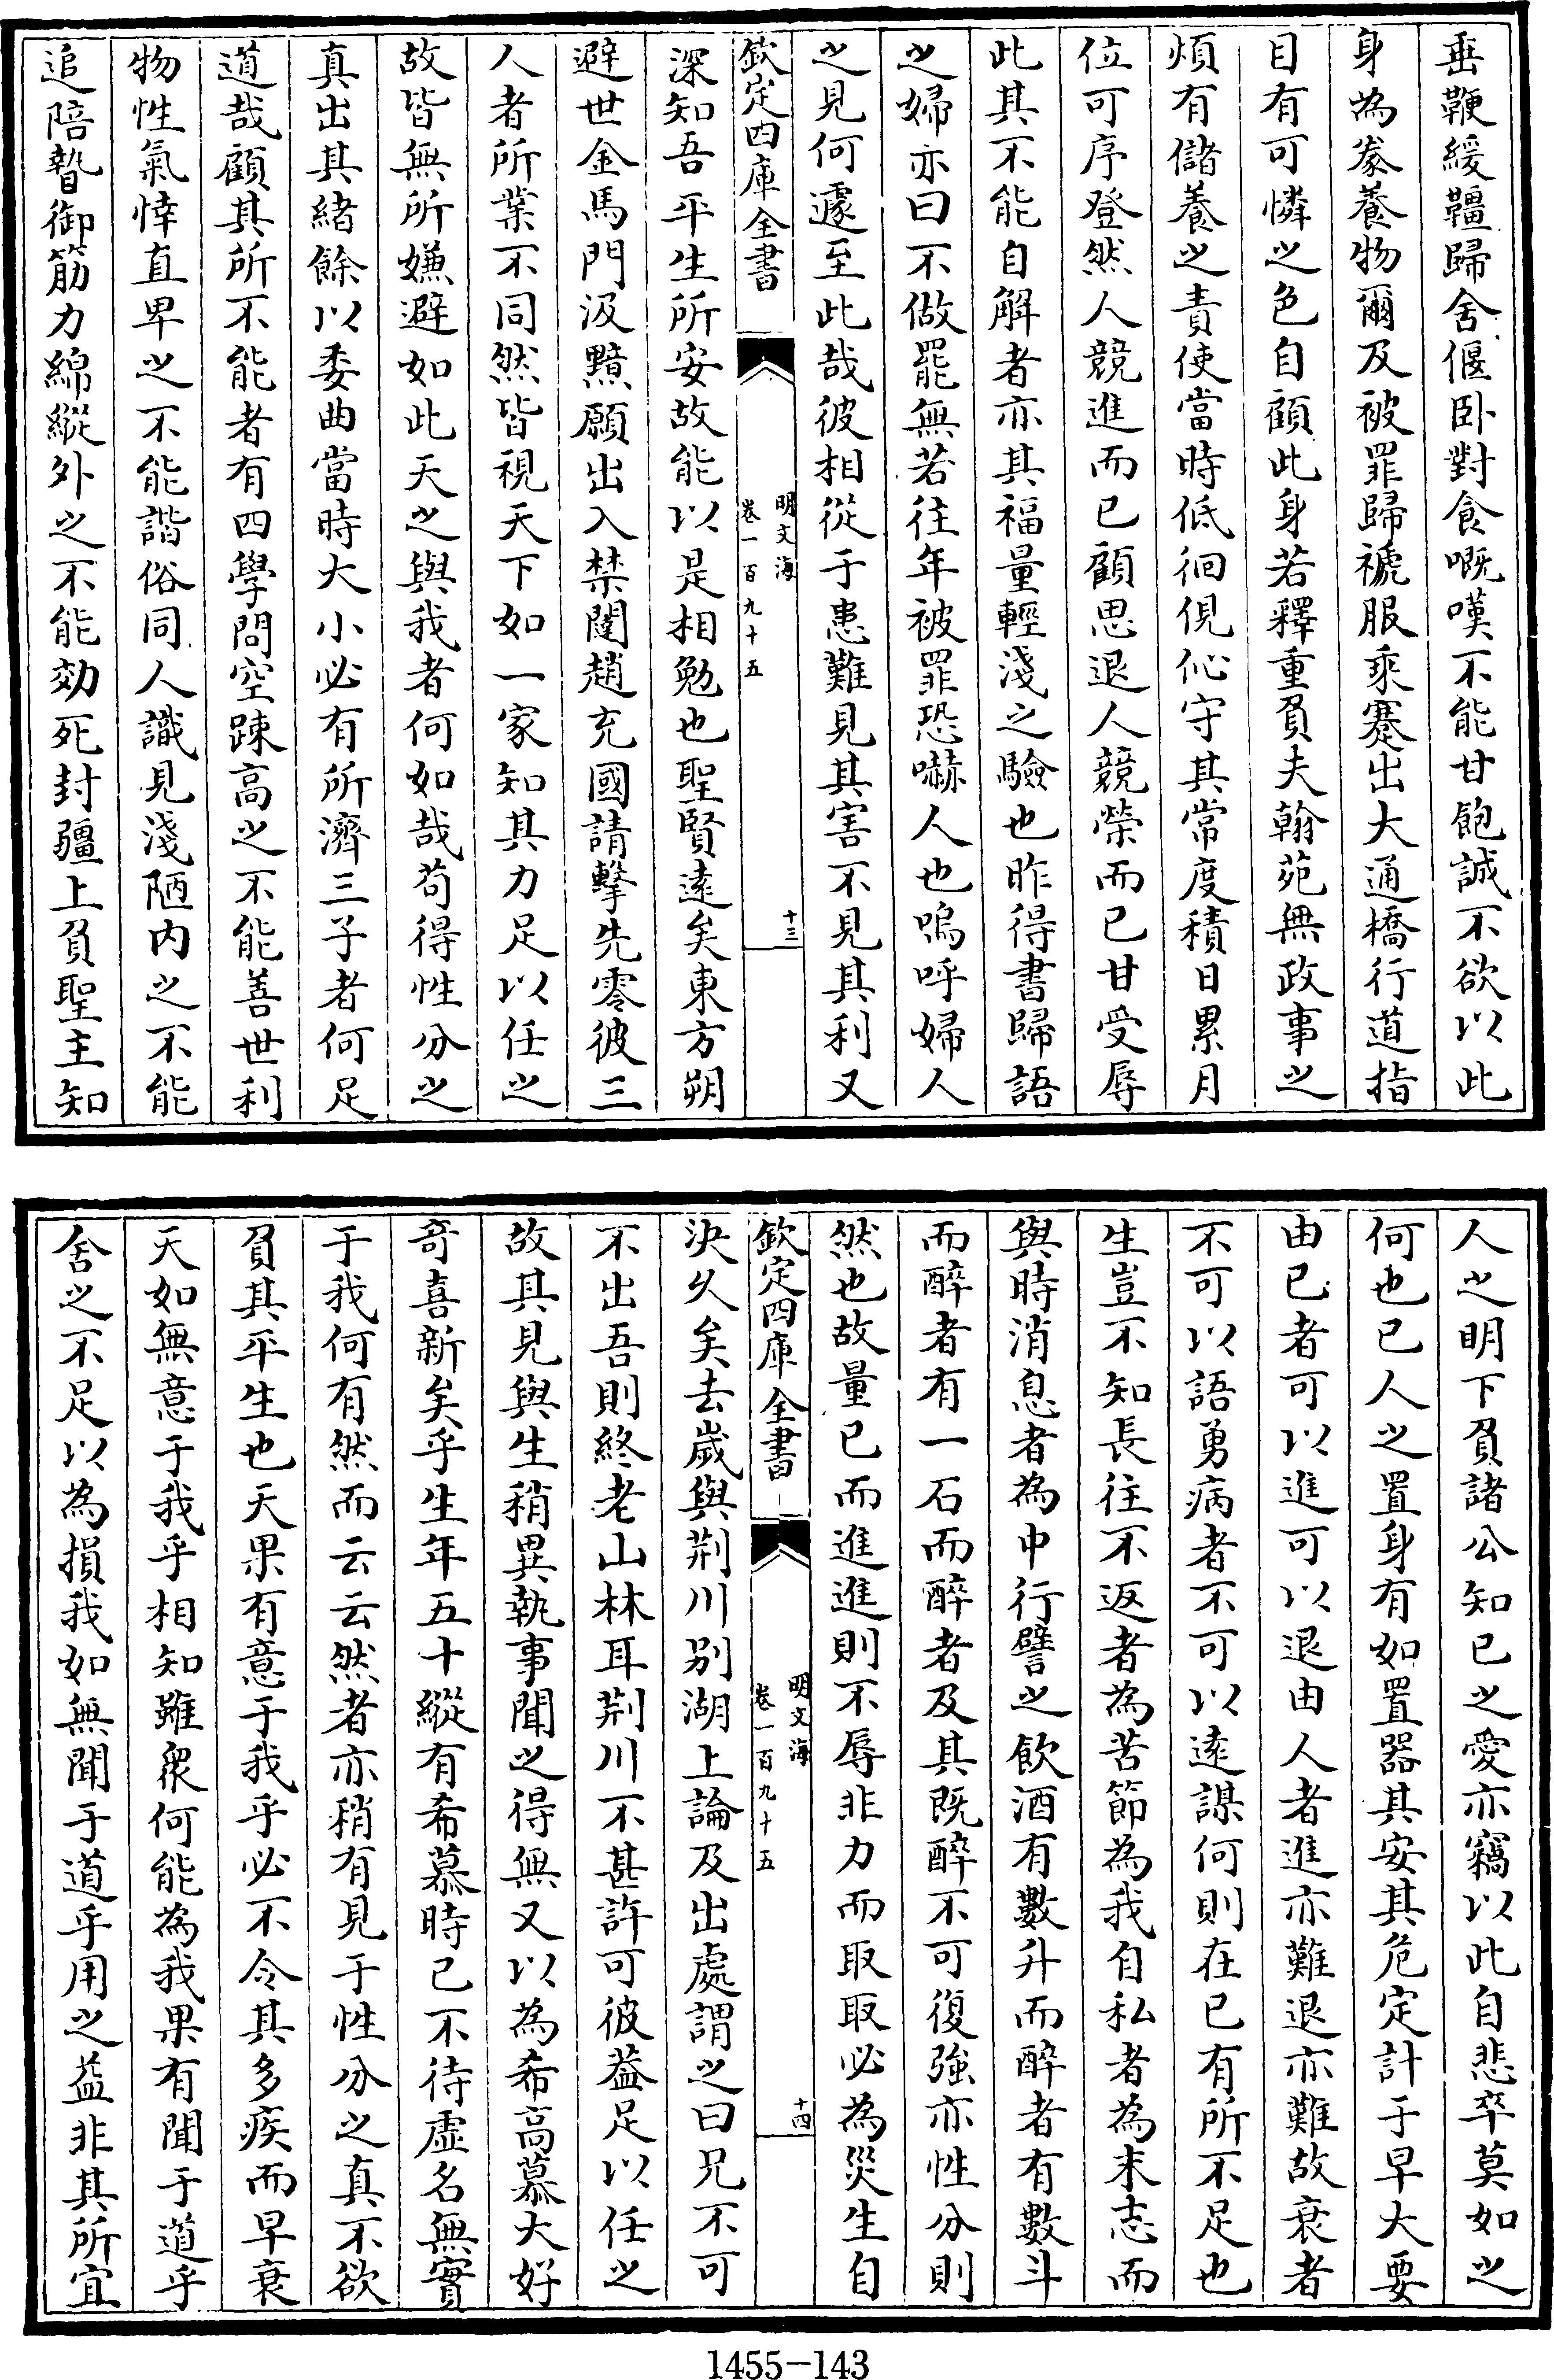 垂鞭緩韁歸舍偃卧對食嘅嘆不能甘飽誠不欲以此
身為豢養物爾及被罪歸褫服乘蹇出大通橋行道指
目有可憐之色自顧此身若釋重負夫翰苑無政事之
煩有儲養之責使當時低徊俔伈守其常度積日累月
位可序登然人競進而已顧思退人競榮而已甘受辱
此其不能自解者亦其福量輕淺之驗也昨得書歸語
之婦亦曰不做罷無若往年被罪恐嚇人也嗚呼婦人
之見何遽至此哉彼相從于患難見其害不見其利又
欽定四庫全書
明文海
卷一百九十五
十三
深知吾平生所安故能以是相勉也聖賢遠矣東方朔
避世金馬門汲黯願出入禁闥趙充國請擊先零彼三
人者所業不同然皆視天下如一家知其力足以任之
故皆無所嫌避如此天之與我者何如哉苟得性分之
真出其緒餘以委曲當時大小必有所濟三子者何足
道哉顧其所不能者有四學問空踈高之不能善世利
物性氣悻直卑之不能諧俗同人識見淺陋内之不能
追陪暬御筋力綿縱外之不能効死封疆上負聖主知
人之明下負諸公知已之愛亦竊以此自悲卒莫如之
何也已人之置身有如置器其安其危定計于早大要
由已者可以進可以退由人者進亦難退亦難故衰者
不可以語勇病者不可以遠謀何則在已有所不足也
生豈不知長往不返者為苦節為我自私者為末志而
與時消息者為中行譬之飲酒有數升而醉者有數斗
而醉者有一石而醉者及其既醉不可復強亦性分則
然也故量已而進進則不辱非力而取取必為災生自
欽定四庫全書
明文海
卷一百九十五
十四
決久矣去歲與荆川别湖上論及出處謂之曰兄不可
不出吾則終老山林耳荆川不甚許可彼葢足以任之
故其見與生稍異執事聞之得無又以為希高慕大好
奇喜新矣乎生年五十縱有希慕時已不待虛名無實
于我何有然而云云然者亦稍有見于性分之真不欲
負其平生也天果有意于我乎必不令其多疾而早衰
天如無意于我乎相知雖衆何能為我果有聞于道乎
舍之不足以為損我如無聞于道乎用之益非其所宜
1455-143